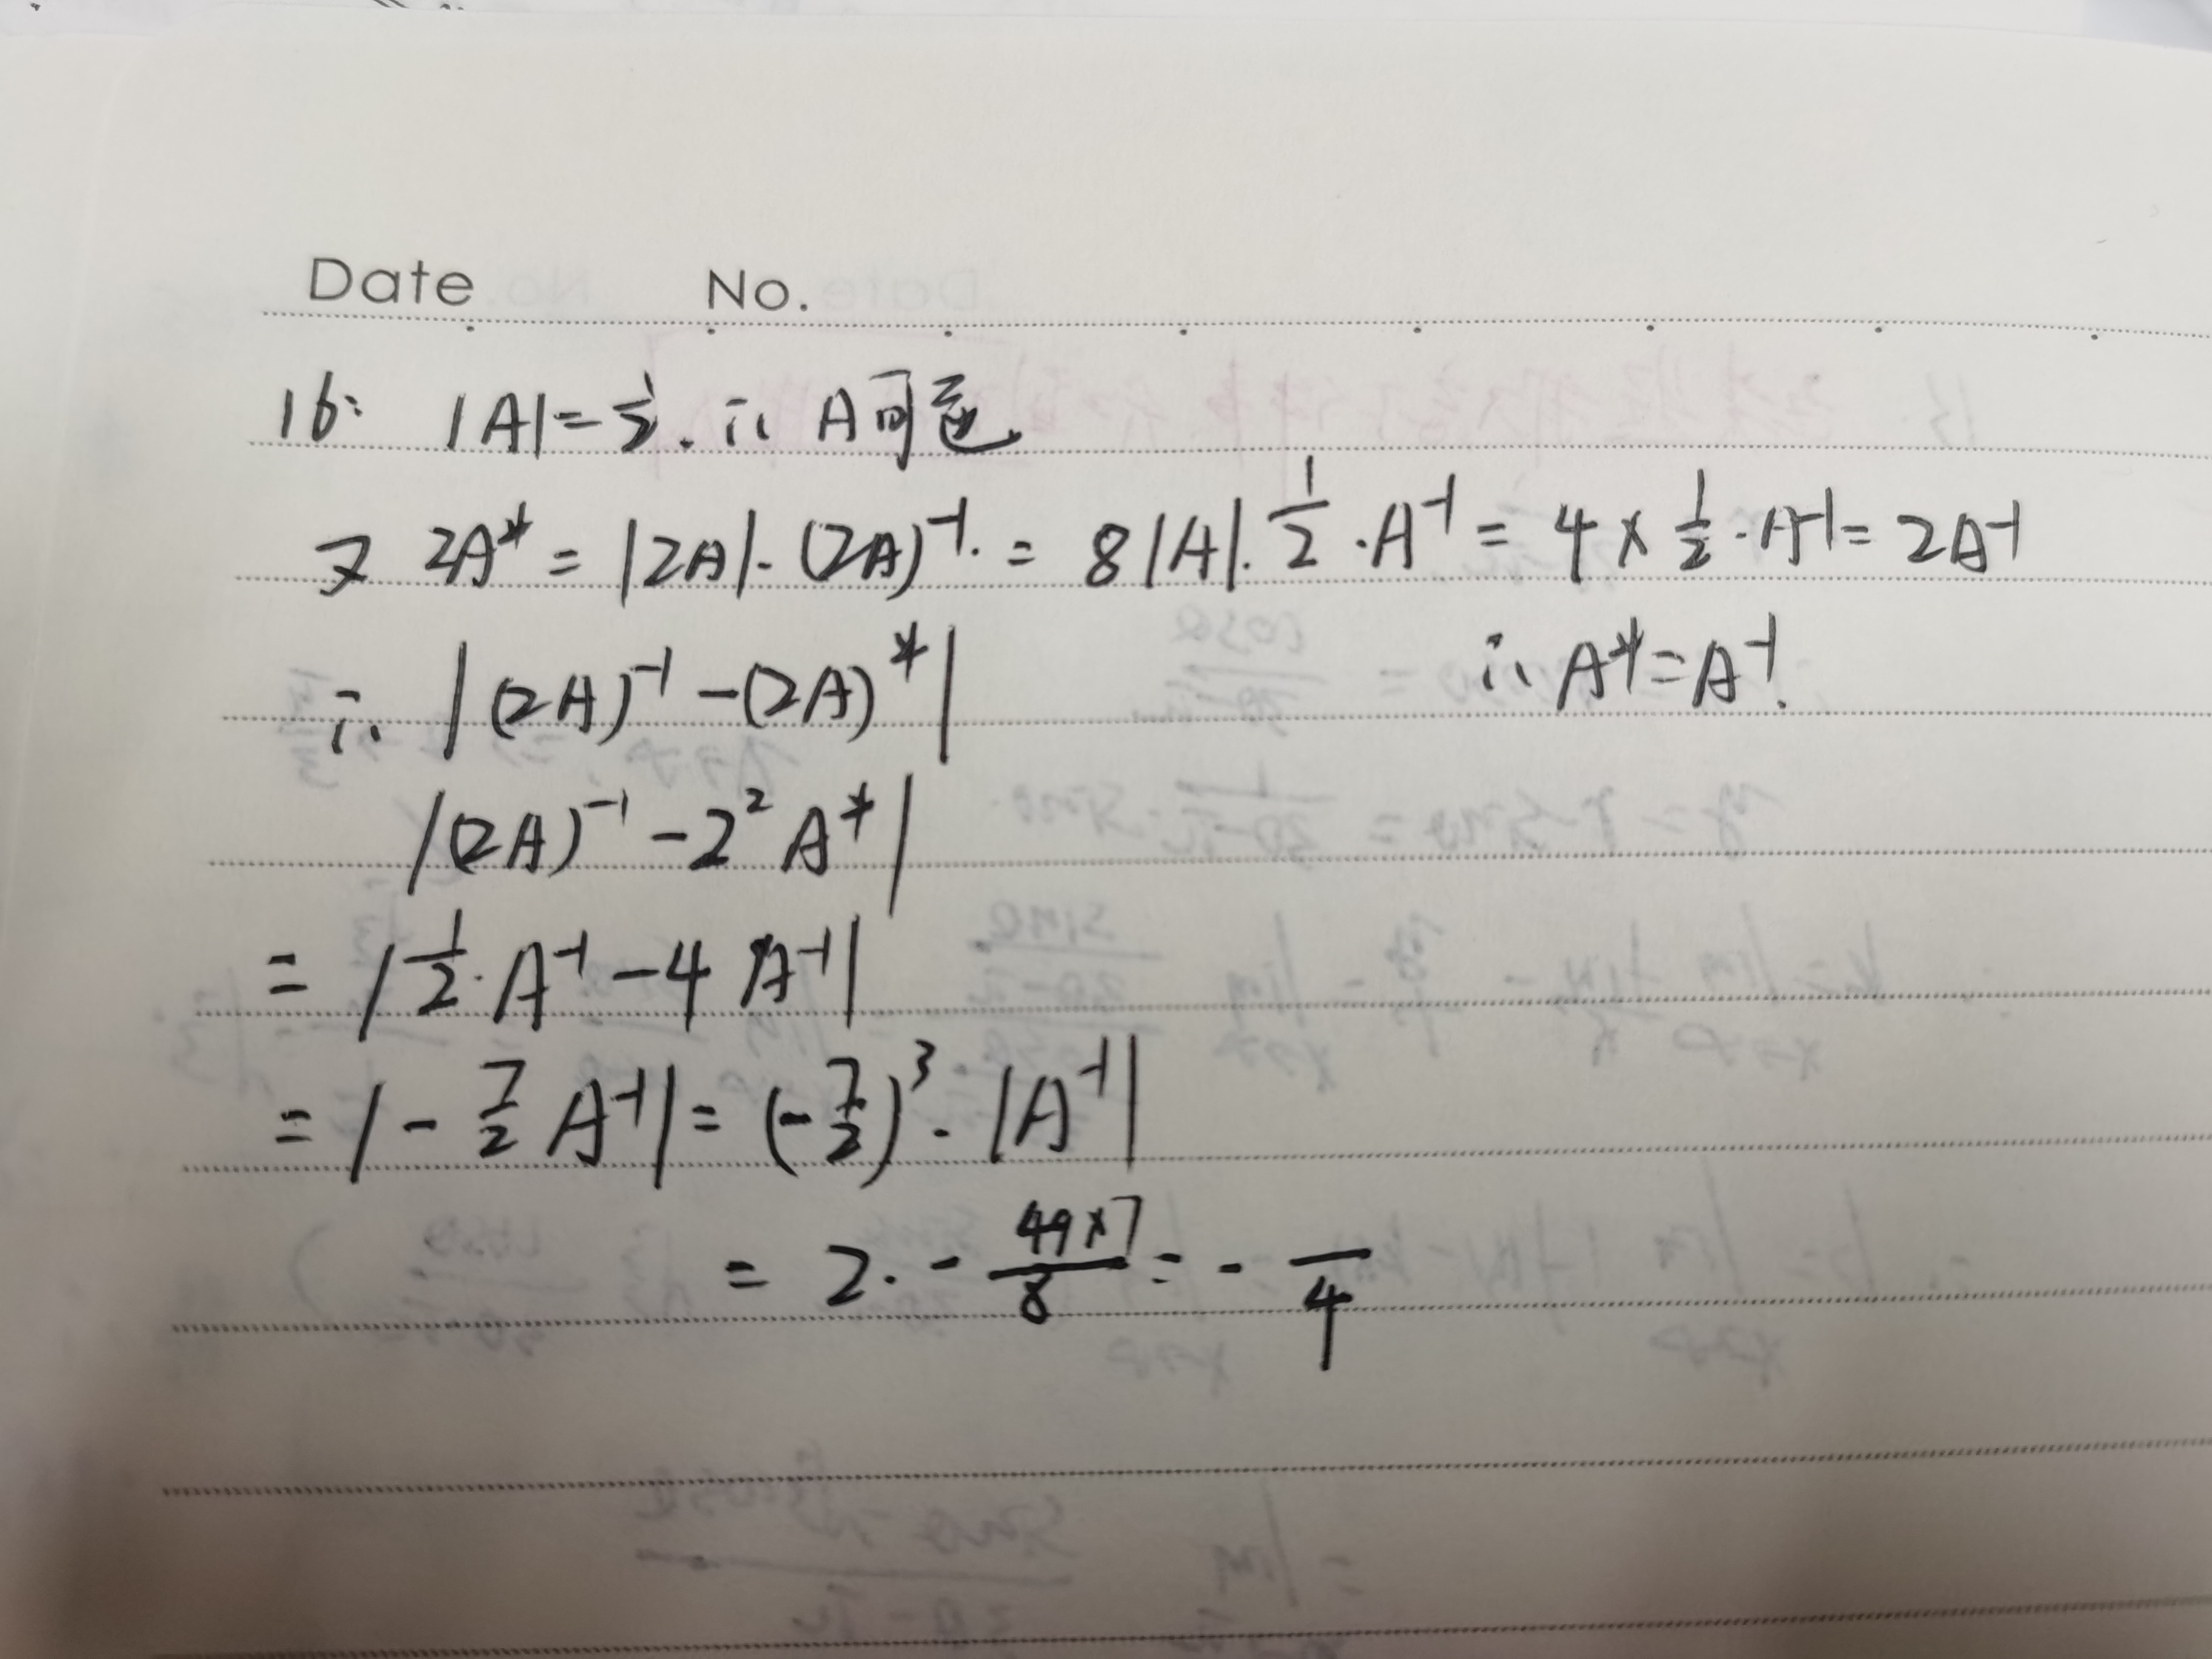 Date No.
16: |A|=½. ∴ A可逆
又 2A* = |2A|·(2A)⁻¹. = 8|A|·½·A⁻¹ = 4×½·A⁻¹ = 2A⁻¹
∴ |(2A)⁻¹-(2A)*| ∴ A*=A⁻¹.
|(2A)⁻¹-2²A*|
= |½·A⁻¹-4A⁻¹|
= |-7/2 A⁻¹| = (-7/2)³·|A⁻¹|
= 2·-49×7/8 = - /4